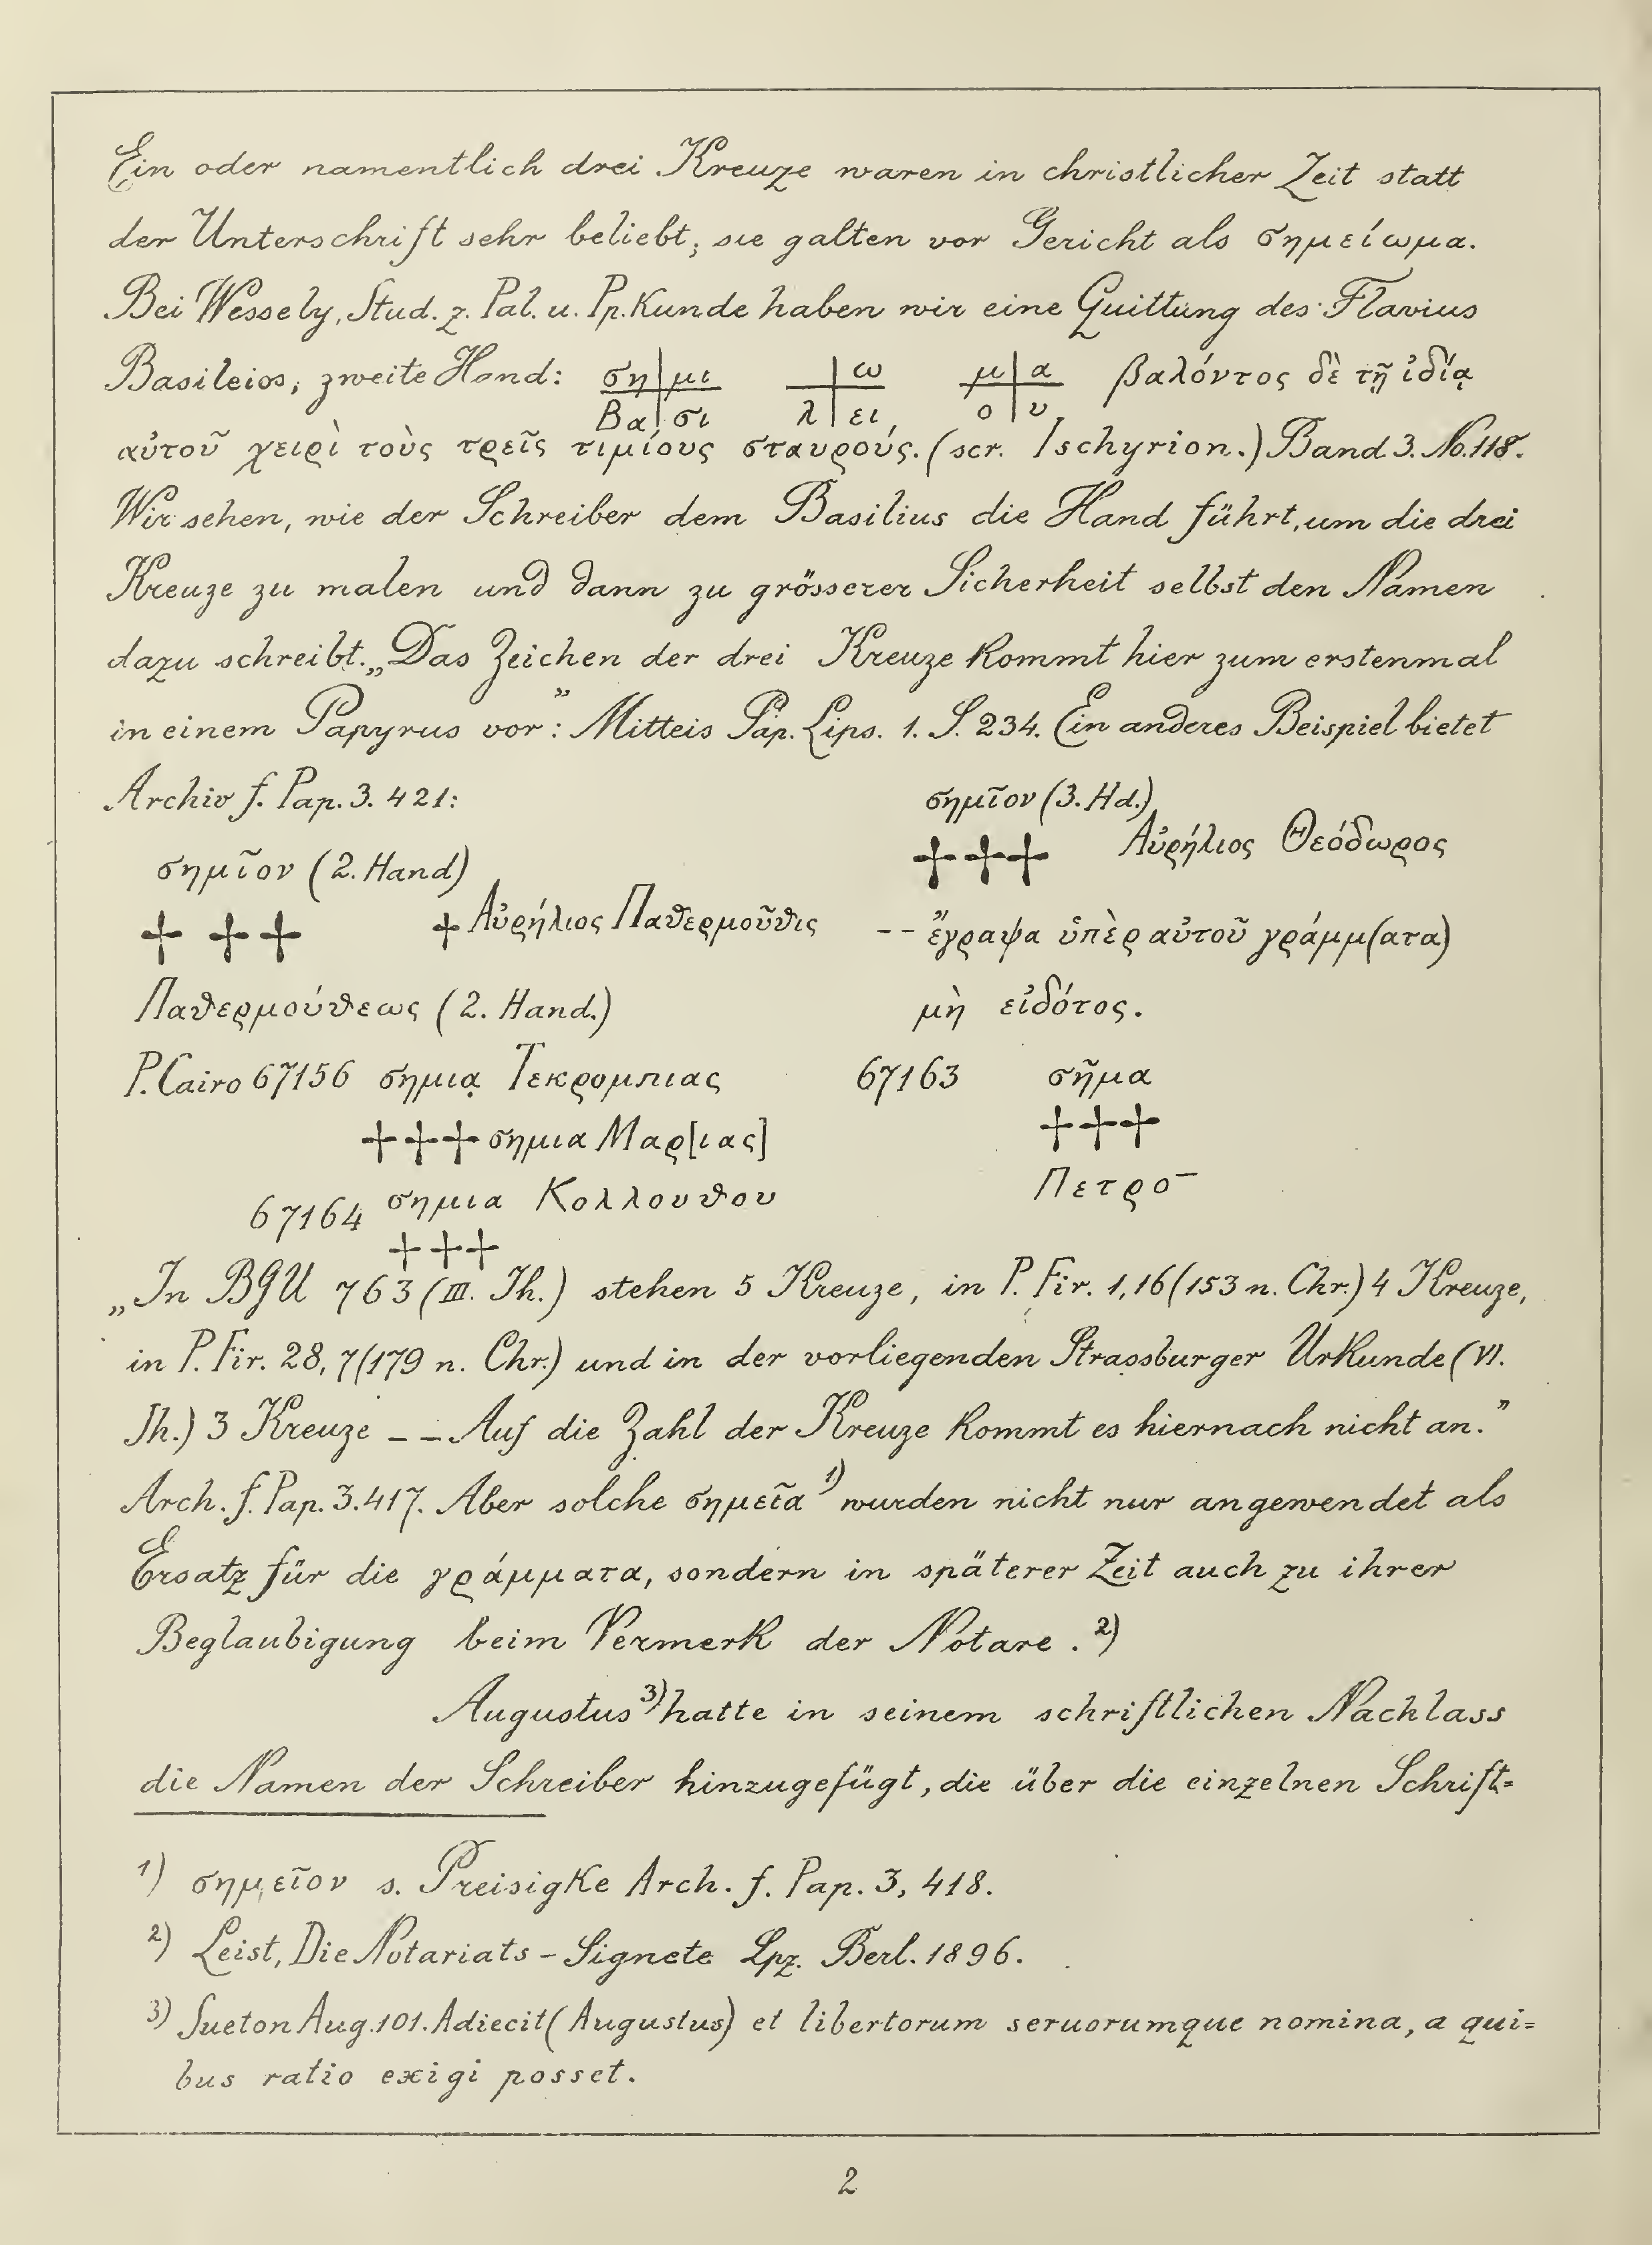 Ein oder namentlich drei Kreuze waren in christlicher Zeit statt
der Unterschrift sehr beliebt; sie galten vor Gericht als σημείωμα.
Bei Wessely, Stud. z. Pal. u. Pp. Kunde haben wir eine Quittung des Flavius
Basileios, zweite Hand: ση|μι |ω μ|α βαλόντος δὲ τῇ ἰδίᾳ
Βα|σι λ|ει ο|υ
αὐτοῦ χειρὶ τοὺς τρεῖς τιμίους σταυρούς. (scr. Ischyrion.) Band. 3. No. 118.
Wir sehen, wie der Schreiber dem Basilius die Hand führt, um die drei
Kreuze zu malen und dann zu grösserer Sicherheit selbst den Namen
dazu schreibt. „Das Zeichen der drei Kreuze kommt hier zum erstenmal
in einem Papyrus vor”: Mitteis Pap. Lips. 1. S. 234. Ein anderes Beispiel bietet
Archiv f. Pap. 3. 421: σημῖον (3. Hd.)
☩☩☩ Αὐρήλιος Θεόδωρος
σημῖον (2. Hand)
☩ ☩☩ ☩ Αὐρήλιος Παθερμοῦθις -- ἔγραψα ὑπὲρ αὐτοῦ γράμμ(ατα)
Παθερμούθεως (2. Hand.) μὴ εἰδότος.
P. Cairo 67156 σημια Τεκρομπιας 67163 σῆμα
☩☩☩ σημια Μαρ[ιας] ☩☩☩
67164 σημια Κολλουθου Πετρο–
☩☩☩
„In BGU 763 (III. Jh.) stehen 5 Kreuze, in P. Fir. 1,16 (153 n. Chr.) 4 Kreuze,
in P. Fir. 28, 7 (179 n. Chr.) und in der vorliegenden Strassburger Urkunde (VI.
Jh.) 3 Kreuze -- Auf die Zahl der Kreuze kommt es hiernach nicht an.”
Arch. f. Pap. 3. 417. Aber solche σημεῖα 1) wurden nicht nur angewendet als
Ersatz für die γράμματα, sondern in späterer Zeit auch zu ihrer
Beglaubigung beim Vermerk der Notare. 2)
Augustus 3) hatte in seinem schriftlichen Nachlass
die Namen der Schreiber hinzugefügt, die über die einzelnen Schrift=
1) σημεῖον s. Preisigke Arch. f. Pap. 3, 418.
2) Leist, Die Notariats-Signete Lpz. Berl. 1896.
3) Sueton Aug. 101. Adiecit (Augustus) et libertorum seruorumque nomina, a qui=
bus ratio exigi posset.
2